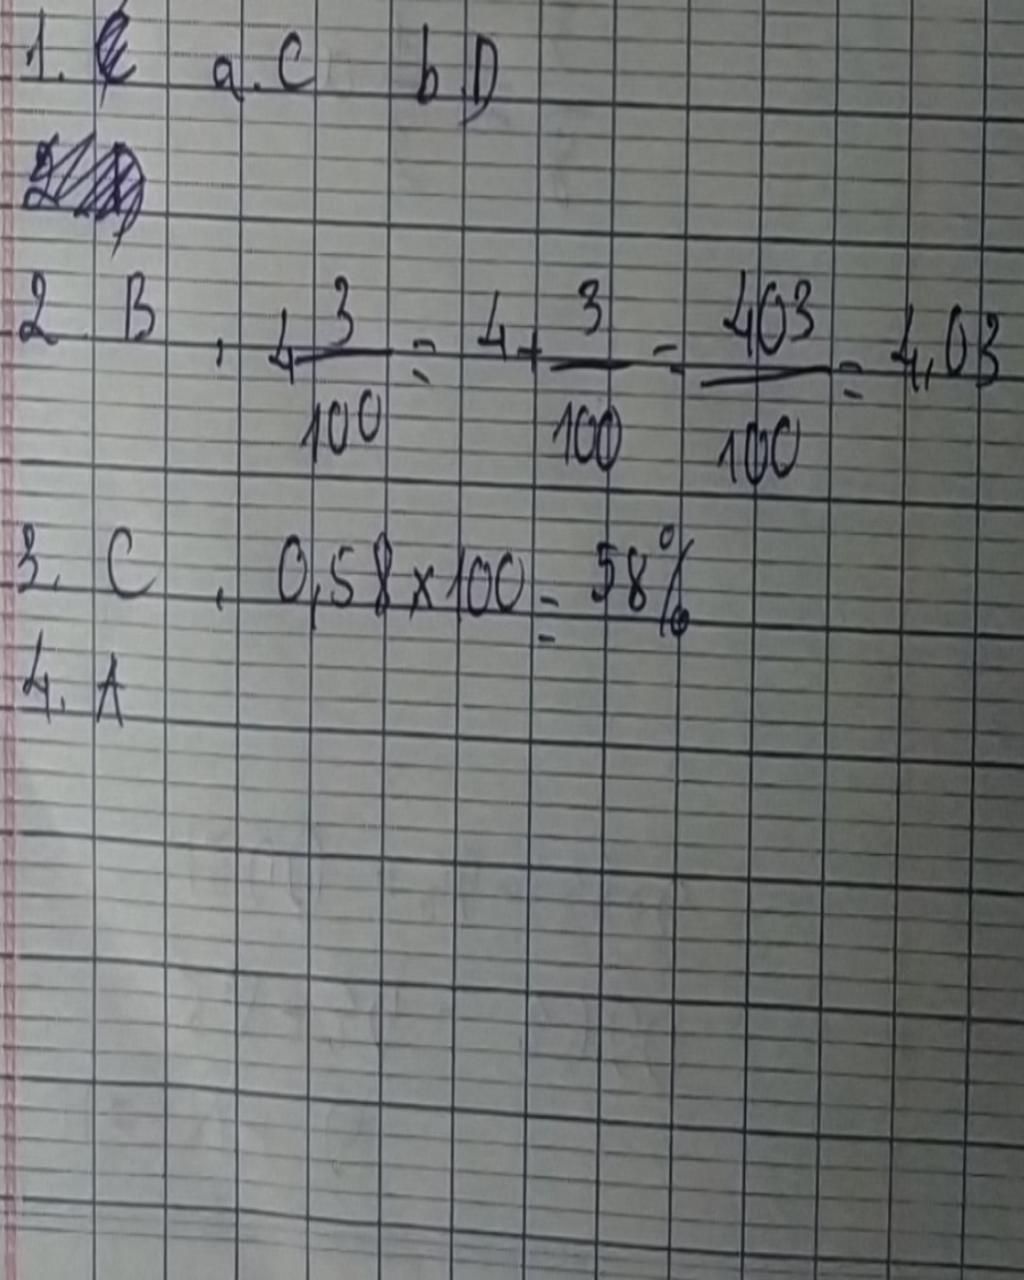 1. a. C b D
2 B, 4 3/100 = 4 + 3/100 = 403/100 = 4,03
3. C, 0,58 x 100 = 58%
4. A